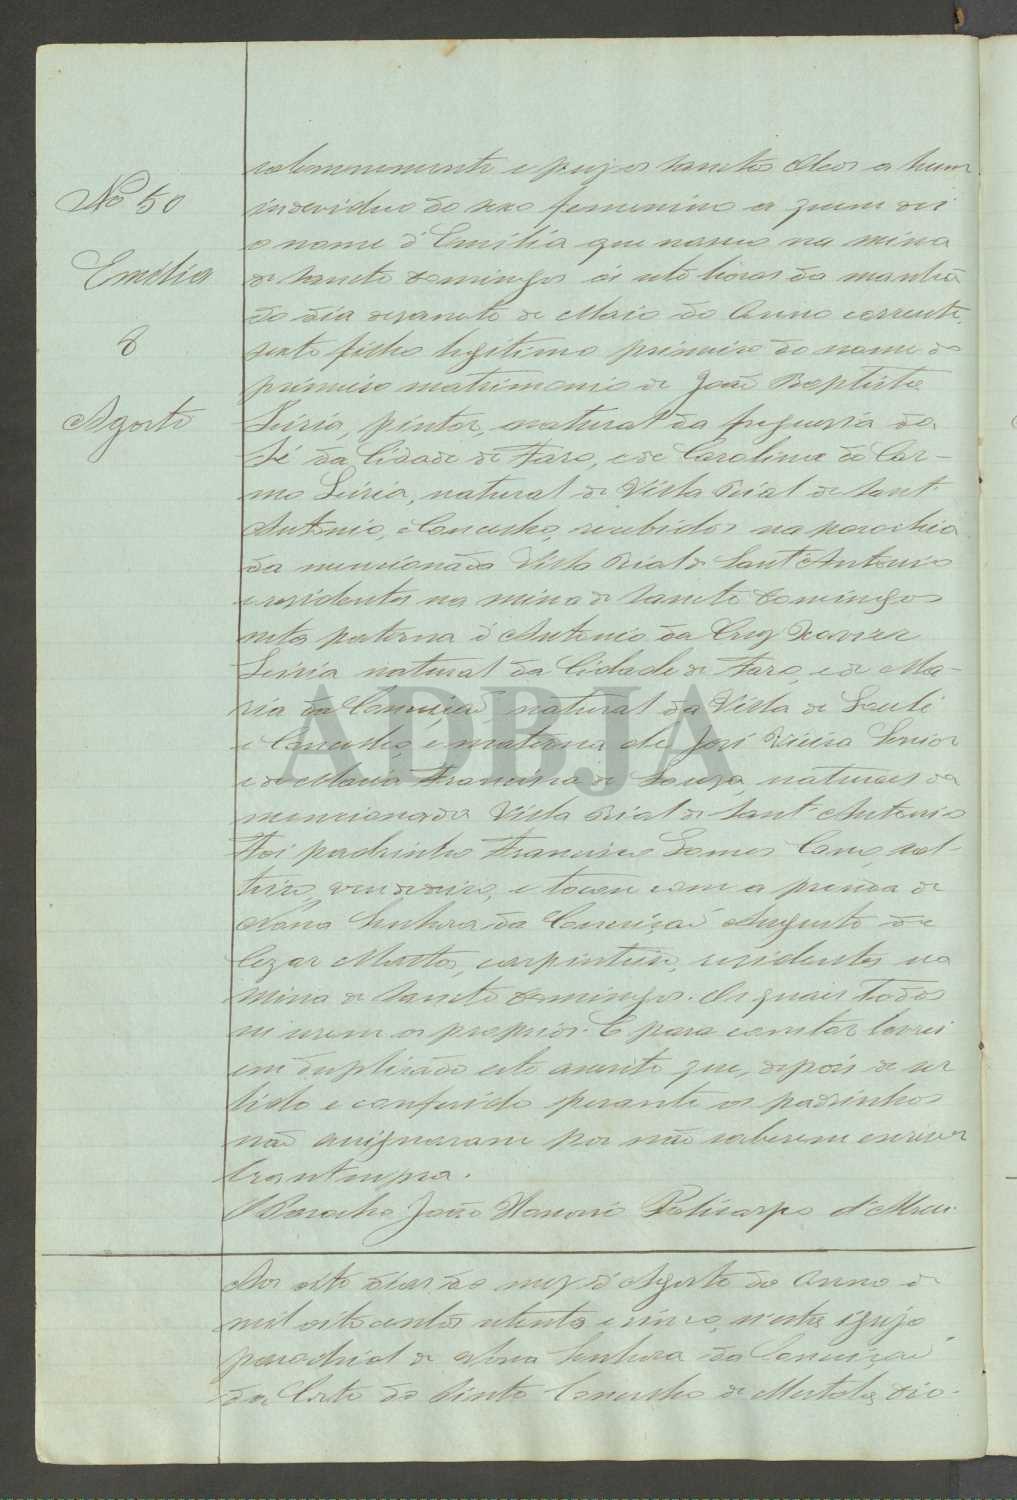 solemnemente e puz os sanctos Oleos a hum
No 50
individuo do sexo femenino a quem dei
o nome d'Emilia que nasceo na mina
Emilia
de Sancto Domingos ás sete horas da manhã
do dia desanete de Maio do Anno corrente,
8
sexto filho legitimo primeiro do nome do
primeiro matrimonio de João Baptista
Agosto
Leiria, pintor, natural da freguesia da
Sé da Cidade de Faro, e de Carolina do Car-
mo Leiria, natural de Villa Rial de Sant'
Antonio, e Concelho, recebidos na parochia
da mencionada Villa Rial de Sant'Antonio
e residentes na mina de Sancto Domingos
neta paterna d'Antonio da Cruz Xavier
Leiria natural da Cidade de Faro, e de Ma-
ria da Conceição, natural da Villa de Loulé
e Concelho, e materna de José Vieira Senior
e de Maria Francisca de Souza, naturaes da
mencionada Villa Rial de Sant'Antonio
Foi padrinho Francisco Gomes Cano, sol-
teiro, vendeiro, e tocou com a prenda de
Nossa Senhora da Conceição Augusto de
Cezar Mattos, carpinteiro, residentes na
mina de Sancto Domingos. Os quais todos
sei serem os proprios. E para constar lavrei
em duplicado este assento que, depois de ser
lido e conferido perante os padrinhos
não assignaram por não saberem escrever
Era ut supra.
O Parocho João Policarpo d'
Aos oito dias do mez d'Agosto do Anno de
mil oitocentos setenta e cinco, n'esta igreja
parochial de Nossa Senhora da Conceição
da Corte do Pinto Concelho de Mertola Dio-
ADBJA